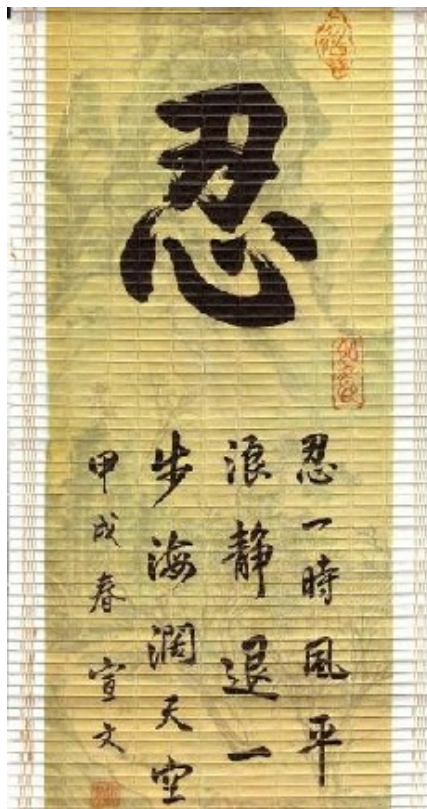 忍
忍一時風平
浪静退一
步海濶天空
甲戌春宣文